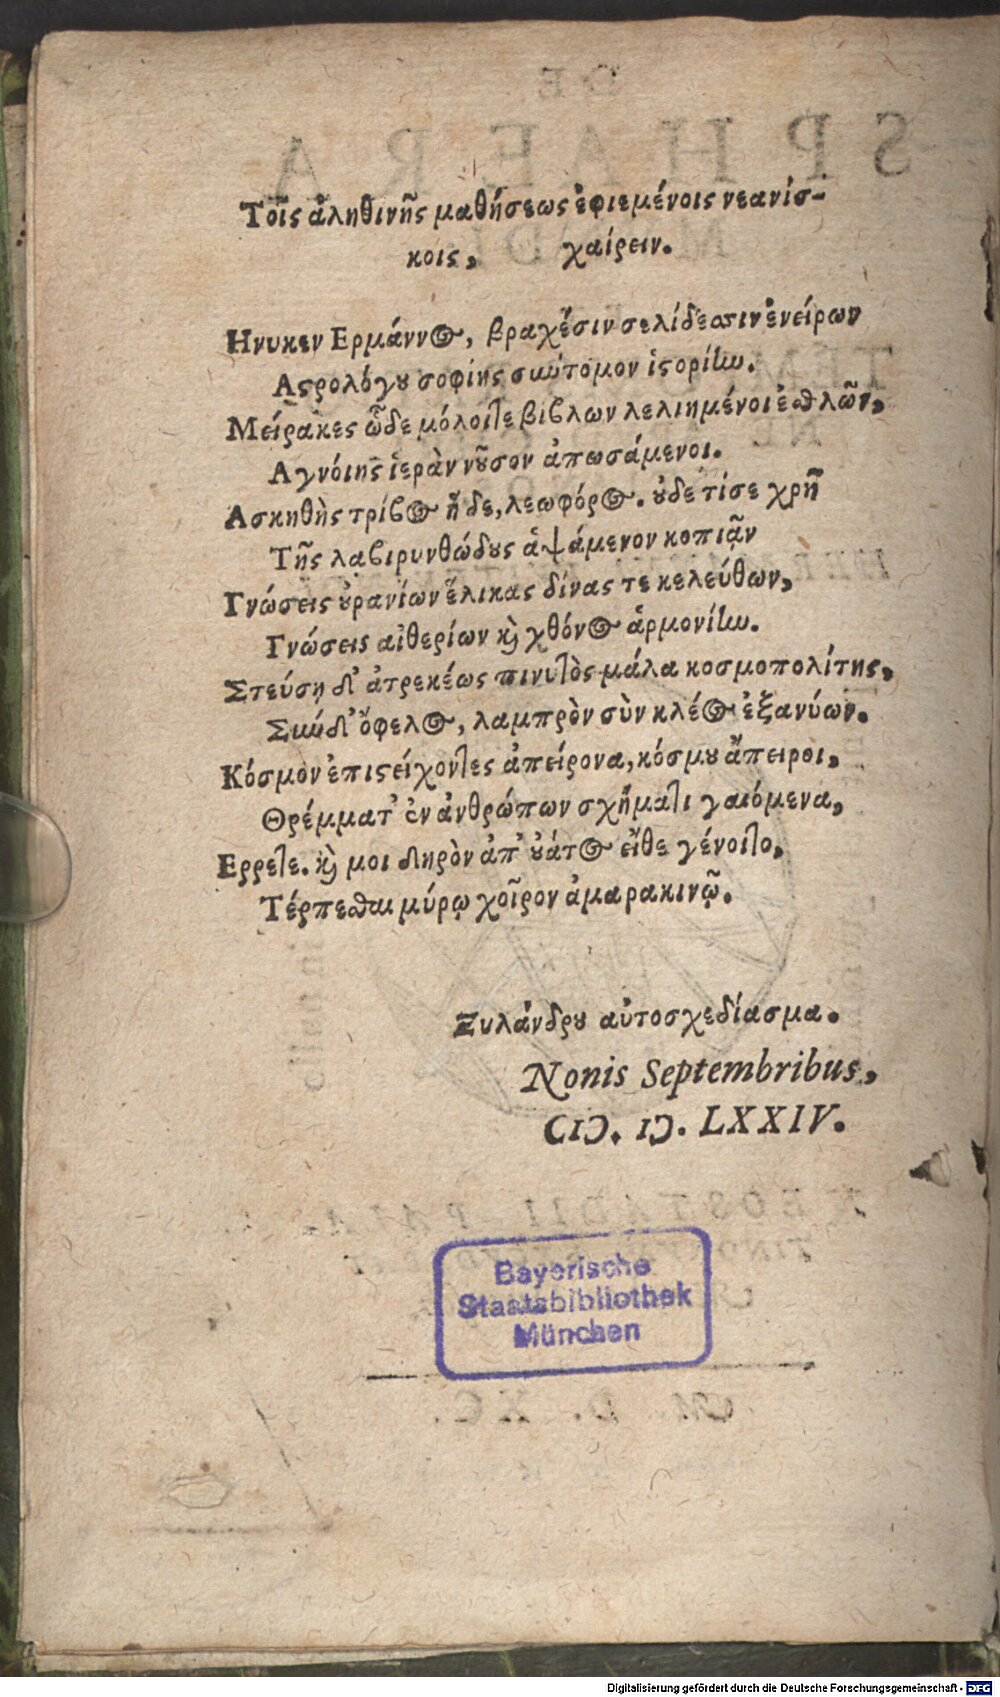 Τοῖς ἀληθινῆς μαθήσεως ἐφιεμένοις νεανίσ-
κοις, χαίρειν.
Ηνυκεν Ερμάννος, βραχέεσιν σελίδεσσιν ἐνείρων
Αϛρολόγου σοφίης σκύτομον ἱϛορίην.
Μείρακες ὧδε μόλοιτε βίβλων λελιημένοι ἐσθλῶν,
Αγνοίης ἱερὰν νοῦσον ἀπωσάμενοι.
Ασκηθὴς τρίβος ἥδε, λεωφόρος. οὐδε τί σε χρῆ
Τῆς λαβιρυνθώδους ἁψάμενον κοπιᾷν
Γνώσεις οὐρανίων ἕλικας δίνας τε κελεύθων,
Γνώσεις αἰθερίων καὶ χθόνος ἁρμονίην.
Στεύση δ' ἀτρεκέως πινυτὸς μάλα κοσμοπολίτης,
Σκύδ' ὄφελος, λαμπρὸν σὺν κλέος ἐξανύων.
Κόσμον ἐπιϛείχοντες ἀπείρονα, κόσμου ἄπειροι,
Θρέμματ' ἐν ἀνθρώπων σχήματι γαιόμενα,
Ερρετε. καὶ μοι δηρὸν ἀπ' οὐάτος εἴθε γένοιτο,
Τέρπεσθαι μύρῳ χοῖρον ἀμαρακινῷ.
Ξυλάνδρου αὐτοσχεδίασμα.
Nonis Septembribus,
CIↃ. IↃ. LXXIV.
Bayerische
Staatsbibliothek
München
Digitalisierung gefördert durch die Deutsche Forschungsgemeinschaft - DFG